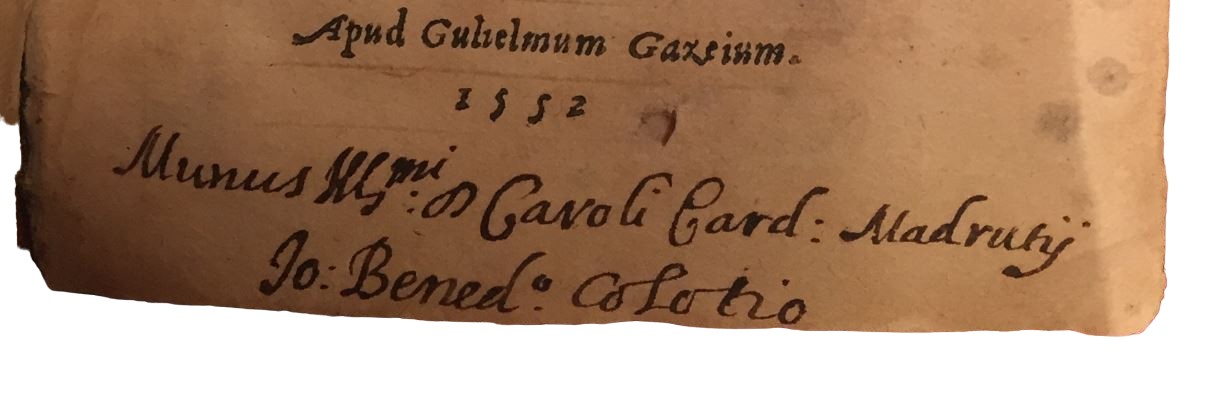 Apud Gulielmum Gazeium.
1552
Munus Illmi: D Caroli Card: Madrutij
Jo: Bened.o Colotio